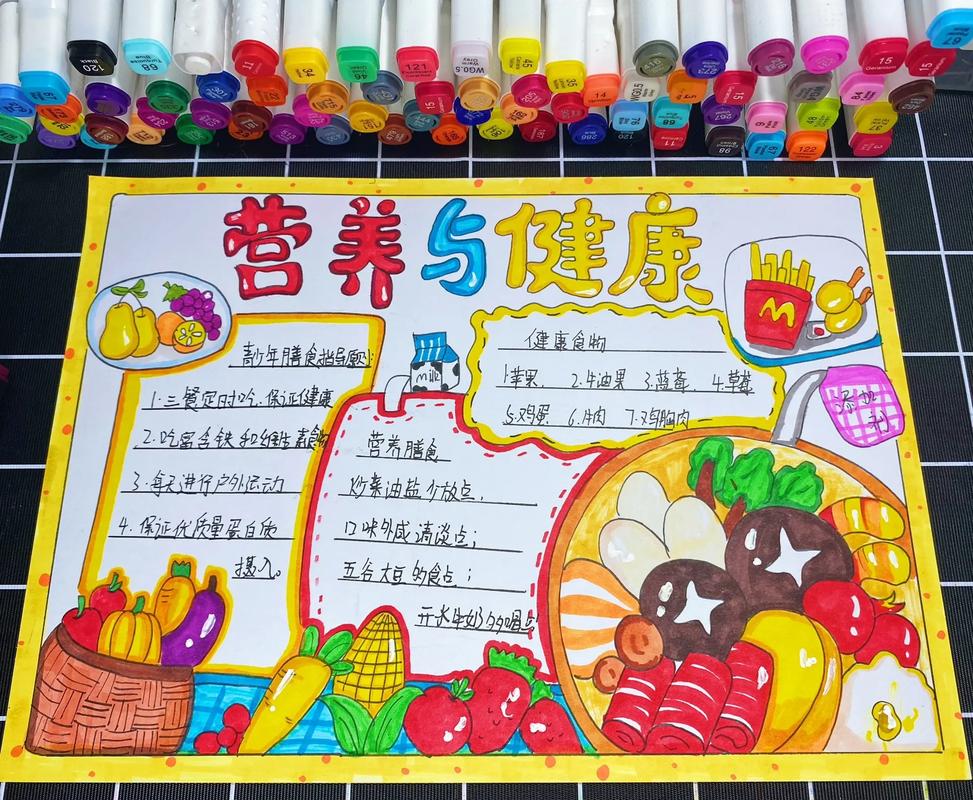 120
Black
68
Turquoise Blue
11
121
WG0.5
Warm Gray
45
15
Geranium
15
67
48
14
WG0.5
15
120
11
68
98
122
37
营养与健康
青少年膳食指导原则:
1.三餐定时吃.保证健康
2.吃富含铁和维生素食物
3.每天进行户外运动
4.保证优质量蛋白质
摄入。
milk
营养膳食
炒菜油盐少放点,
口味外咸清淡点;
五谷大豆的食点;
开水牛奶多喝点
健康食物
1.苹果. 2.牛油果 3.蓝莓. 4.草莓
5.鸡蛋. 6.牛肉 7.鸡胸肉
M
添加
剂